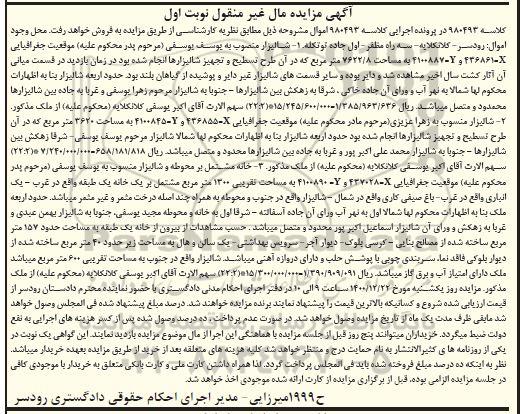 آگهی مزایده مال غیر منقول نوبت اول
کلاسه ۹۸۰۴۹۳ در پرونده اجرایی کلاسه ۹۸۰۴۹۳ اموال مشروحه ذیل مطابق نظریه کارشناسی از طریق مزایده به فروش خواهد رفت. محل وجود
اموال: رودسر- کلانکلایه- سه راه مظفر- اول جاده توتکله. ۱- شالیزار منصوب به یوسف یوسفی (مرحوم پدر محکوم علیه) موقعیت جغرافیایی
۴۳۶۸۶۱-X و ۴۱۰۰۸۸۷-Y به مساحت ۷۶۲۲/۸ متر مربع که در آن طرح تسطیح و تجهیز شالیزارها انجام شده بود در زمان بازدید در قسمت میانی
آن آثار کشت سال اخیر مشاهده شد و دایر بوده و سایر قسمت های شالیزار غیر دایر و پوشیده از گیاهان بلند بود. حدود اربعه شالیزار بنا به اظهارات
محکوم لها شمالا به نهر آب و ورای آن جاده خاکی. شرقا به زهکش بین شالیزارها - جنوبا به شالیزار مرحوم زهرا یوسفی و غربا به جاده بین شالیزارها
محدود و متصل میباشد. ریال ۱/۳۸۵/۹۶۳/۶۳۶=(۲۲:۲)×۱۵/۲۴۵/۶۰۰/۰۰۰ سهم الارث آقای اکبر یوسفی کلانکلایه (محکوم علیه) از ملک مذکور.
۲- شالیزار منسوب به زهرا عزیزی(مرحوم مادر محکوم علیه) موقعیت جغرافیایی ۴۳۶۸۵۵-X و ۴۱۰۰۸۴۵-Y به مساحت ۳۶۲۰ متر مربع که در آن
طرح تسطیح و تجهیز شالیزارها انجام شده بود حدود اربعه شالیزار بنا به اظهارات محکوم لها شمالا شالیزار مرحوم یوسف یوسفی - شرقا زهکش بین
شالیزارها - جنوبا به شالیزار محمد علی اکبر پور و غربا به جاده بین شالیزارها محدود و متصل میباشد. ریال ۶۵۸/۱۸۱/۸۱۸=(۲۲:۲)×۷/۲۴۰/۰۰۰/۰۰۰
سهم الارث آقای اکبر یوسفی کلانکلایه (محکوم علیه) از ملک مذکور. ۳- خانه مشتمل بر محوطه و شالیزار منسوب به یوسف یوسفی (مرحوم پدر
محکوم علیه) موقعیت جغرافیایی ۴۳۷۰۲۸-X و ۴۱۰۰۸۹۰-Y به مساحت تقریبی ۱۳۰۰ متر مربع مشتمل بر یک خانه یک طبقه واقع در غرب - یک
انباری واقع در غرب- باغ صیفی کاری واقع در شمال - شالیزار واقع در جنوب و محوطه به همراه چند اصله درخت مثمر و غیر مثمر میباشد. حدود اربعه
ملک بنا به اظهارات محکوم لها شمالا اول به نهر آب ورای آن جاده آسفالته - شرقا اول به خانه و محوطه مجید یوسفی، جنوبا به شالیزار بهمن عیدی و
غربا به زهکش و ورای آن شالیزار اسماعیل اکبر پور محدود و متصل میباشد. حسب مشاهدات از بیرون از خانه یک طبقه به مساحت حدود ۱۵۷ متر
مربع ساخته شده از مصالح بنایی - کرسی بلوک - دیوار آجر - سرویس بهداشتی - یک سالن و هال به مساحت زیر حدود ۴۰ متر مربع ساخته شده از
دیوار بلوکی فاقد نما، سربندی چوبی با پوشش حلب و دارای دروازه آهنی میباشد. شالیزار واقع در جنوب به مساحت تقریبی ۶۰۰ متر مربع میباشد
ملک دارای امتیاز آب و برق گاز میباشد. ریال ۱/۳۹۰/۹۰۹/۰۹۱=(۲۲:۲)×۱۵/۳۰۰/۰۰۰/۰۰۰ سهم الارث آقای اکبر یوسفی کلانکلایه (محکوم علیه) از ملک
مذکور. مزایده روز یکشنبه مورخ ۱۴۰۰/۱۲/۲۲ ساعت ۹ الی ۱۰ در دفتر اجرای احکام مدنی دادگستری با حضور نماینده محترم دادستان رودسر از
قیمت ارزیابی شده شروع و کسانیکه بالاترین قیمت را پیشنهاد نمایند برنده مزایده خواهند شد. درصد مبلغ پیشنهاد شده فی المجلس وصول خواهد
شد مابقی ظرف مدت یک ماه از تاریخ مزایده وصول خواهد شد. در صورت عدم پرداخت، ده درصد وصول شده پس از کسر هزینه های اجرایی به نفع
دولت ضبط میگردد. خریداران میتوانند پنج روز قبل از جلسه مزایده با هماهنگی این اجرا از مال موضوع مزایده بازدید نمایند. این گواهی یک نوبت در
یکی از روزنامه ها ی کثیرالانتشار به نام حمایت درج و منتظر خواهد شد. کلیه هزینه های متعلقه بعد از خرید از طریق مزایده بعهده خریدار میباشد.
نظر به اینکه ده درصد مبلغ فروخته شده باید فی المجلس پرداخت گردد. لذا همراه داشتن کارت ملی و کارت بانکی متعلق به خریدار با موجودی کافی
در جلسه مزایده الزامی بوده، قبل از برگزاری مزایده از کارت ارائه شده موجودی اخذ خواهد شد.
ح۱۹۹۹میرزایی- مدیر اجرای احکام حقوقی دادگستری رودسر